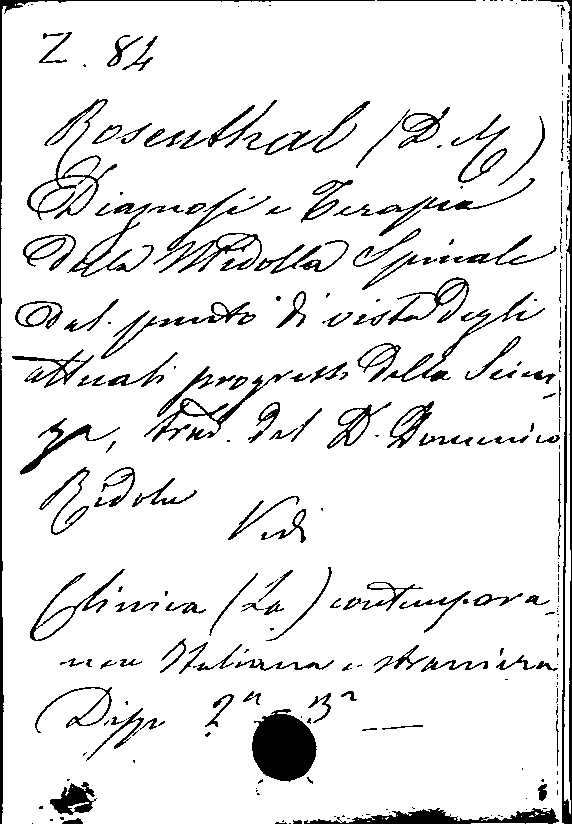 Z. 84
Rosenthal (D. M.)
Diagnosi e Terapia
della Midolla Spinale
dal punto di vista degli
attuali progressi della Scien-
za, trad. del D. Domenico
Vedi
Clinica (La) contempora-
nea Italiana e straniera
Disp. 2ª – 3ª —